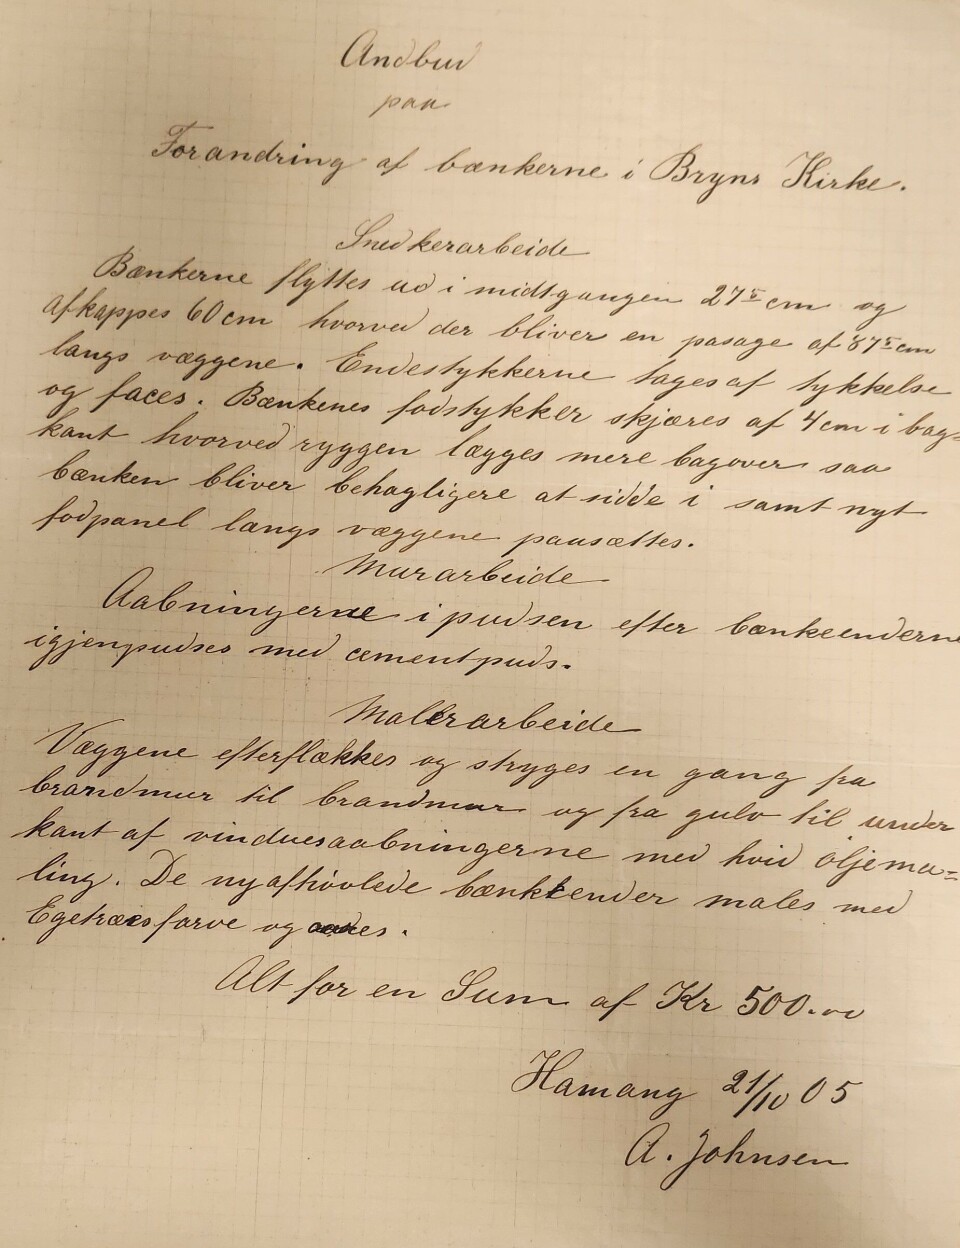 Andbud
paa
Forandring af bænkerne i Bryns Kirke.
Snedkerarbeide
Bænkerne flyttes ud i midtgangen 27⁵ cm og
afkappes 60 cm hvorved der bliver en pasage af 87⁵ cm
langs væggene. Endestykkerne tages af tykkelse
og faces. Bænkenes fodstykker skjæres af 4 cm i bag=
kant hvorved ryggen lægges mere bagover saa
bænken bliver behagligere at sidde i samt nyt
fodpanel langs væggene paasættes.
Murarbeide
Aabningerne i pudsen efter bænkeenderne
igjenpudses med cementpuds.
Malerarbeide
Væggene efterflækkes og stryges en gang fra
brandmur til brandmur og fra gulv til under
kant af vinduesaabningerne med hvid oljema=
ling. De nyafhøvlede bænkeender males med
Egetræesfarve og
Alt for en Sum af Kr 500.00
Hamang 21/10 05
A. Johnsen